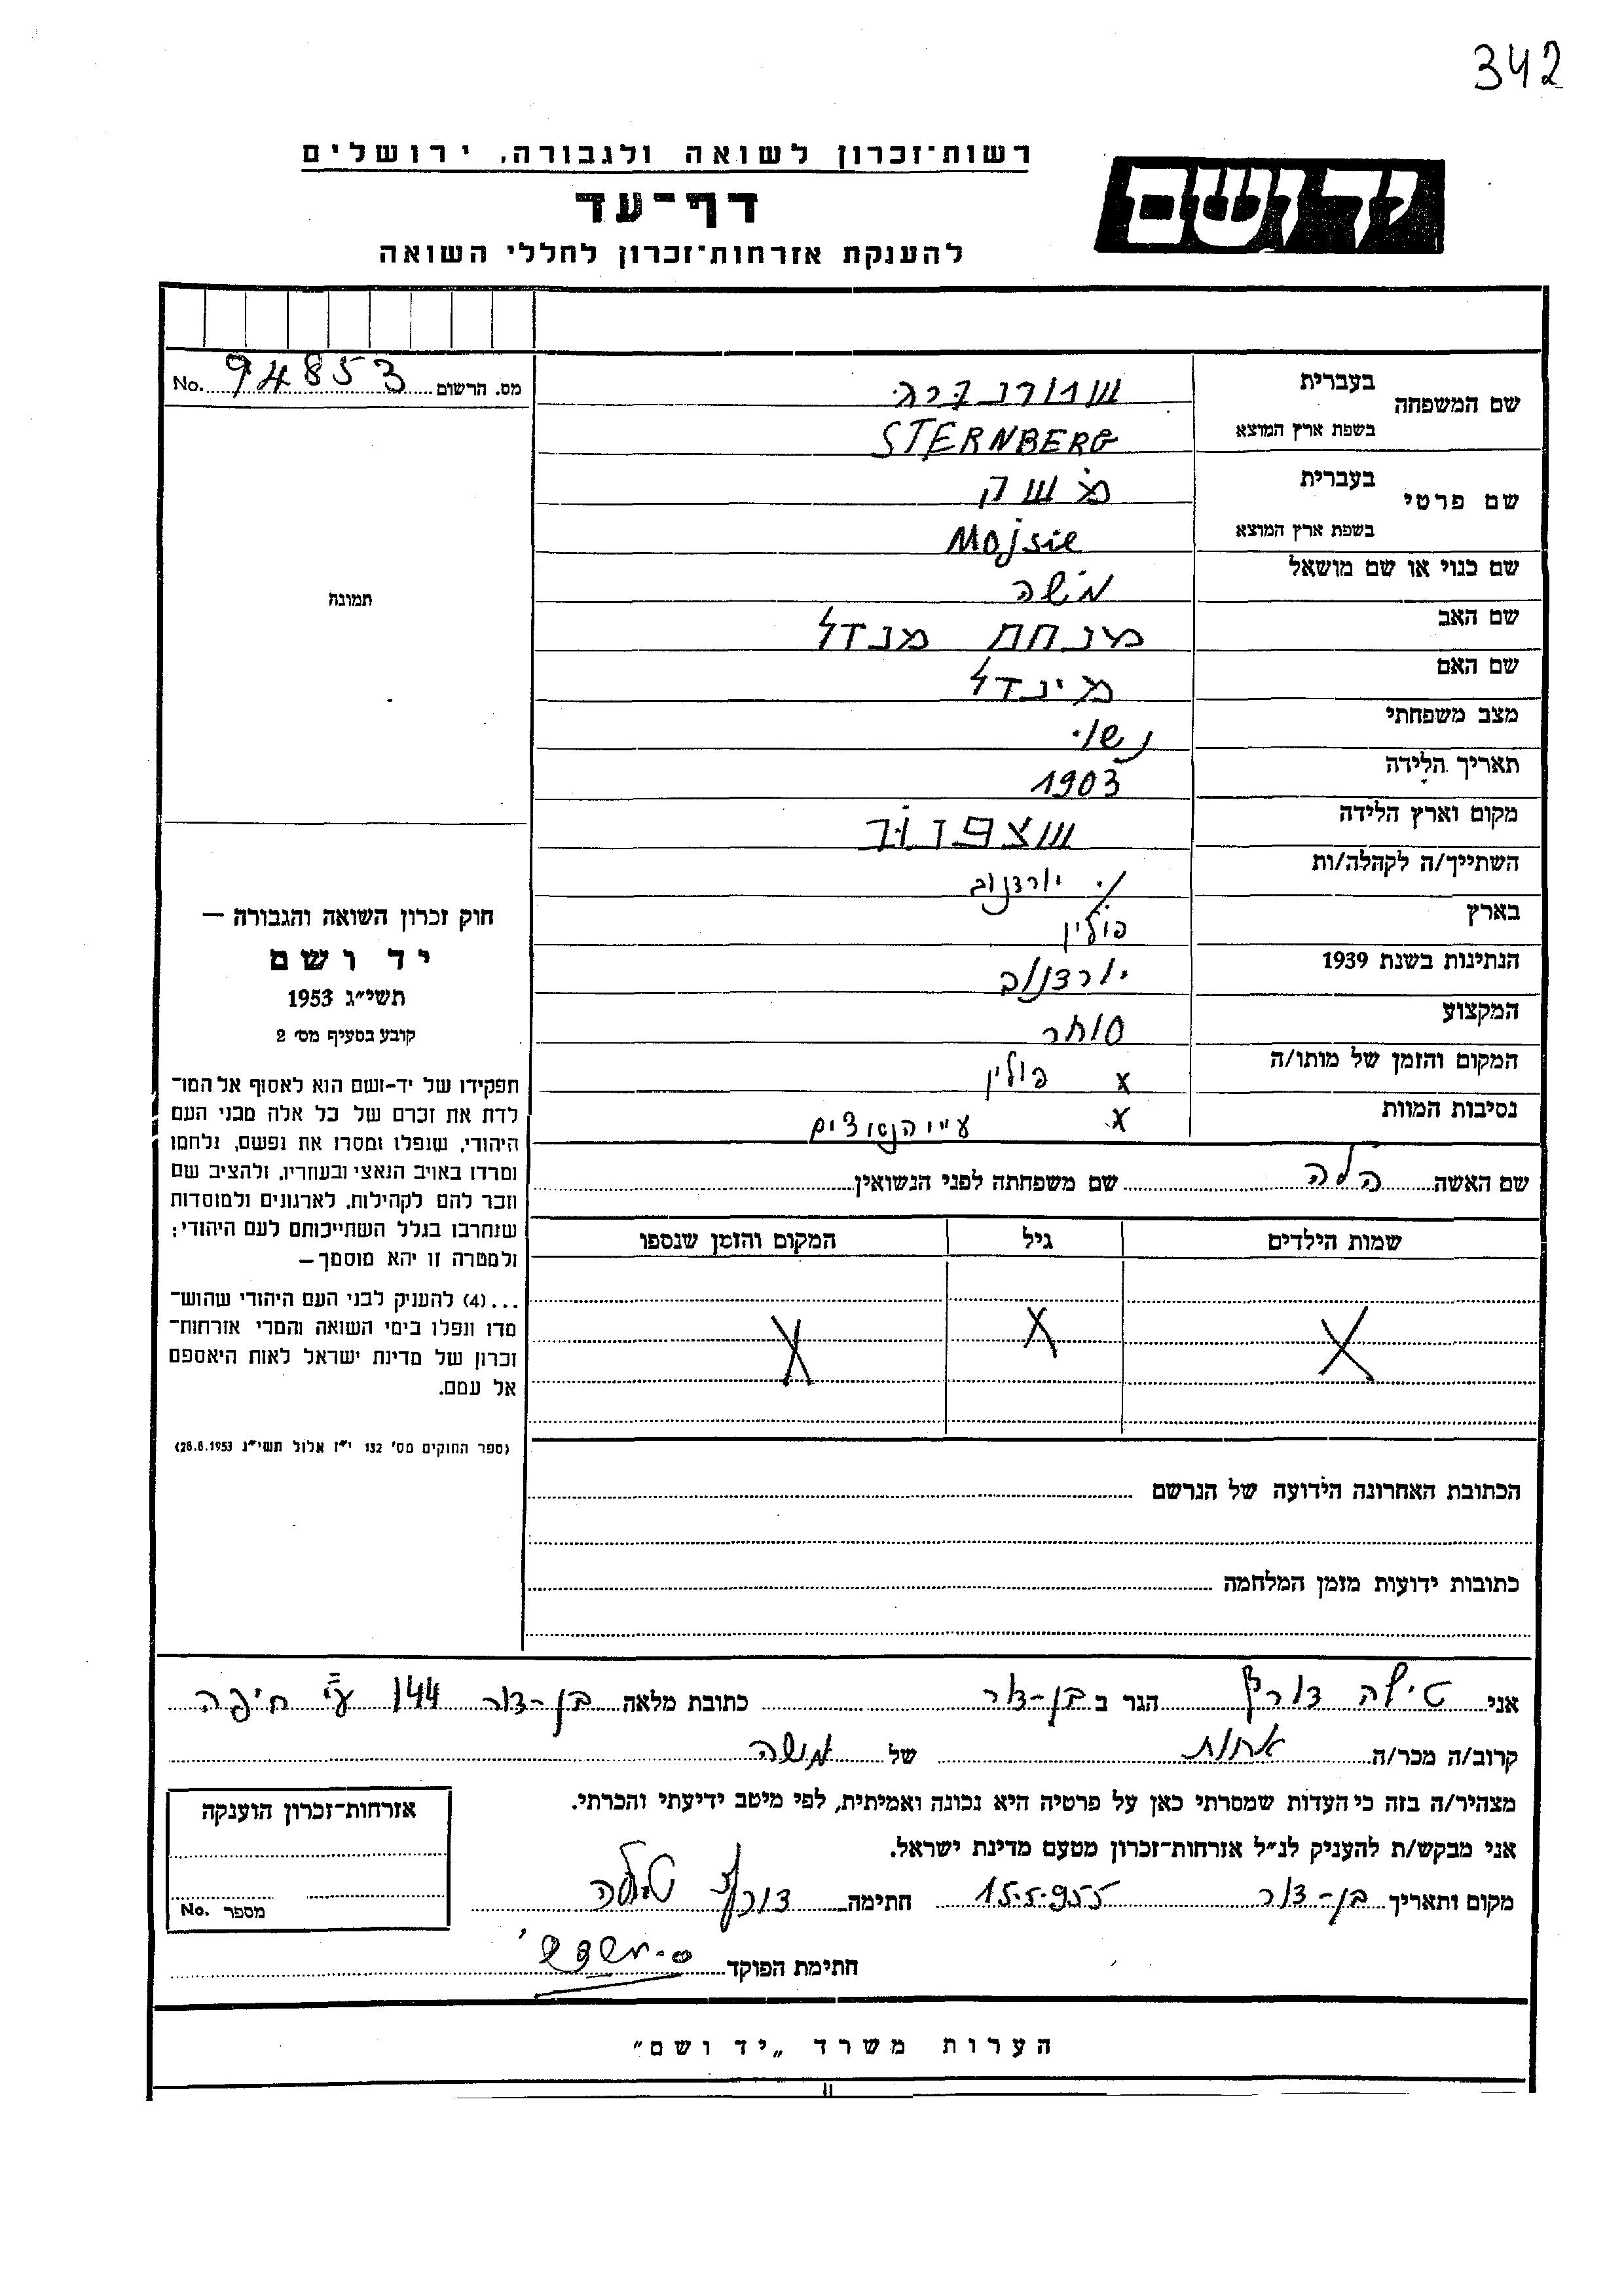 342
רשות־זכרון לשואה ולגבורה, ירושלים
יד ושם
דף־עד
להענקת אזרחות־זכרון לחללי השואה
מס. הרשום 94853 No.
שם המשפחה
בעברית שטרנברג
בשפת ארץ המוצא STERNBERG
שם פרטי
בעברית
בשפת ארץ המוצא Mojsie
שם כנוי או שם מושאל משה
שם האב מנחם מנדל
שם האם מינדל
מצב משפחתי נשוי
תאריך הלידה 1903
מקום וארץ הלידה
השתייך/ה לקהלה/ות
בארץ פולין
הנתינות בשנת 1939
המקצוע סוחר
המקום והזמן של מותו/ה x פולין
נסיבות המוות x ע״י הנאצים
תמונה
חוק זכרון השואה והגבורה —
יד ושם
תשי״ג 1953
קובע בסעיף מס׳ 2
תפקידו של יד־ושם הוא לאסוף אל המו־
לדת את זכרם של כל אלה מבני העם
היהודי, שנפלו ומסרו את נפשם, נלחמו
ומרדו באויב הנאצי ובעוזריו, ולהציב שם
וזכר להם לקהילות, לארגונים ולמוסדות
שנחרבו בגלל השתייכותם לעם היהודי;
ולמטרה זו יהא מוסמך —
...(4) להעניק לבני העם היהודי שהוש־
מדו ונפלו בימי השואה והמרי אזרחות־
זכרון של מדינת ישראל לאות היאספם
אל עמם.
(ספר החוקים מס׳ 132 י״ז אלול תשי״ג 28.8.1953)
שם האשה הלה שם משפחתה לפני הנשואין
שמות הילדים גיל המקום והזמן שנספו
X X X
הכתובת האחרונה הידועה של הנרשם
כתובות ידועות מזמן המלחמה
אני טילה הגר ב בן-דור כתובת מלאה בן-דור 144 ע״י חיפה
קרוב/ה מכר/ה אחות של משה
מצהיר/ה בזה כי העדות שמסרתי כאן על פרטיה היא נכונה ואמיתית, לפי מיטב ידיעתי והכרתי.
אני מבקש/ת להעניק לנ״ל אזרחות־זכרון מטעם מדינת ישראל.
מקום ותאריך בן-דור 15.5.955 חתימה טילה
חתימת הפוקד
אזרחות־זכרון הוענקה
מספר No.
הערות משרד „יד ושם"